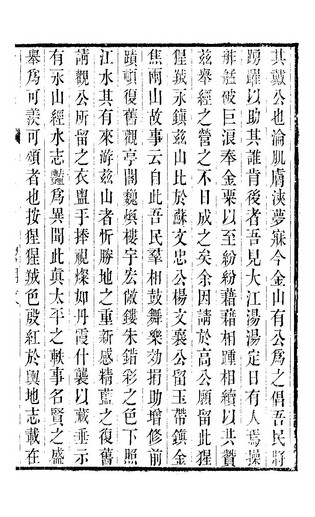 其戴公也淪肌膚浹夢寐今金山有公爲之倡吾民將
踴躍以助其誰肯後者吾見大江湯湯定日有人焉操
舴艋破巨浪奉金粟以至紛紛藉藉相踵相續以共贊
茲舉經之營之不日成之矣余因請於高公願留此猩
猩毧永鎮茲山比於蘇文忠公楊文襄公留玉帶鎮金
焦兩山故事云自此吾民羣相鼓舞樂効捐助增修前
蹟頓復舊觀亭閣巍與樓宇宏敞鏤朱錯彩之色下照
江水其有來游茲山者忻勝地之重新感精藍之復舊
請觀公所留之衣盥手捧視燦如丹霞什襲以藏垂示
有永山經水志豔爲異聞此真太平之軼事名賢之盛
舉爲可羨可頌者也按猩猩毧色殷紅於輿地志載在